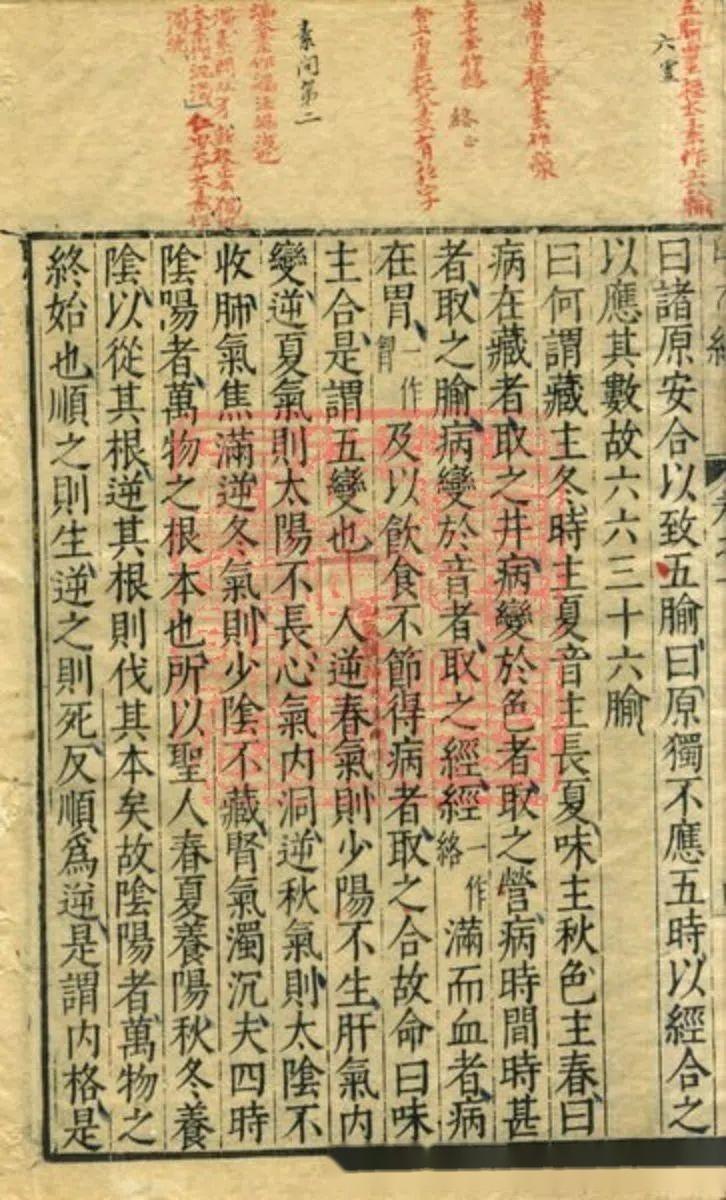 六㚑
素問第二
曰諸原安合以致五腧曰原獨不應五時以經合之
以應其數故六六三十六腧
曰何謂藏主冬時主夏音主長夏味主秋色主春曰
病在藏者取之井病變於色者取之營病時間時甚
者取之腧病變於音者取之經經一作絡滿而血者病
在胃一作胷及以飲食不節得病者取之合故命曰味
主合是謂五變也 人逆春氣則少陽不生肝氣内
變逆夏氣則太陽不長心氣内洞逆秋氣則太陰不
收肺氣焦滿逆冬氣則少陰不藏腎氣濁沉夫四時
陰陽者萬物之根本也所以聖人春夏養陽秋冬養
陰以從其根逆其根則伐其本矣故陰陽者萬物之
終始也順之則生逆之則死反順爲逆是謂内格是